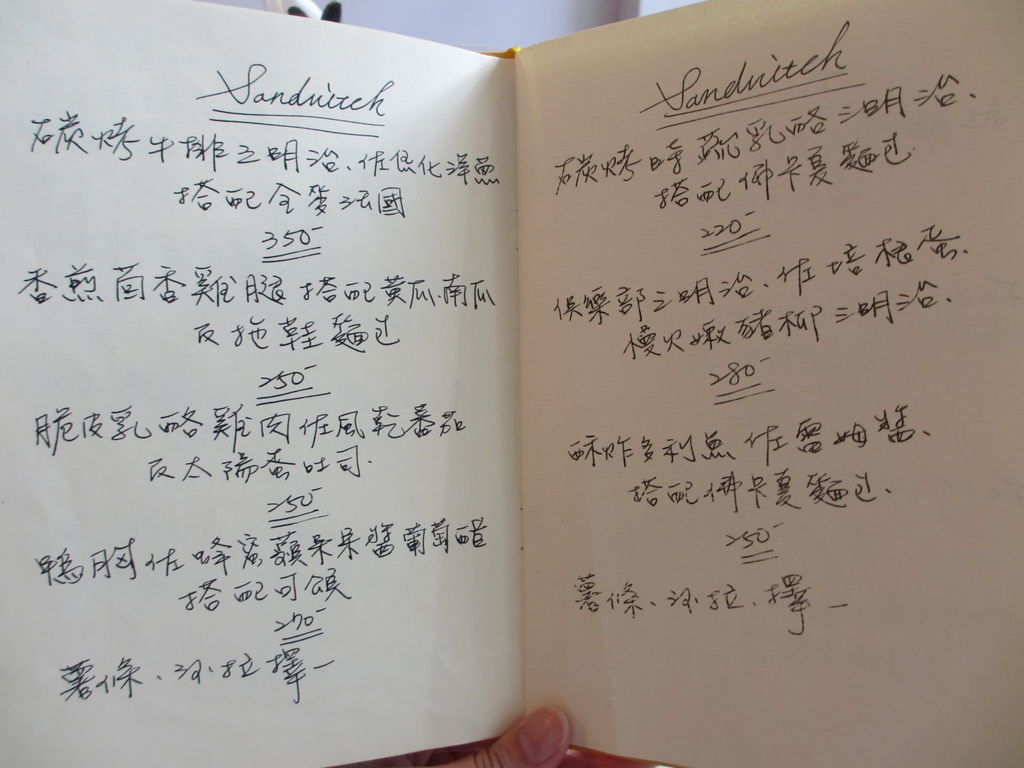 Sandwitch
碳烤牛排三明治、佐焦化洋蔥
搭配全麥法國
350-
香煎茴香雞腿搭配黃瓜.南瓜
及拖鞋麵包
250-
脆皮乳酪雞肉佐風乾番茄
及太陽蛋吐司.
250-
鴨胸佐蜂蜜蘋果果醬葡萄醋
搭配可頌
270-
薯條、沙拉擇一
Sandwitch
碳烤時蔬乳酪三明治、
搭配佛卡夏麵包
220-
俱樂部三明治、佐培根蛋、
慢火嫩豬柳三明治、
280-
酥炸多利魚佐雷姆醬、
搭配佛卡夏麵包、
250-
薯條、沙拉、擇一